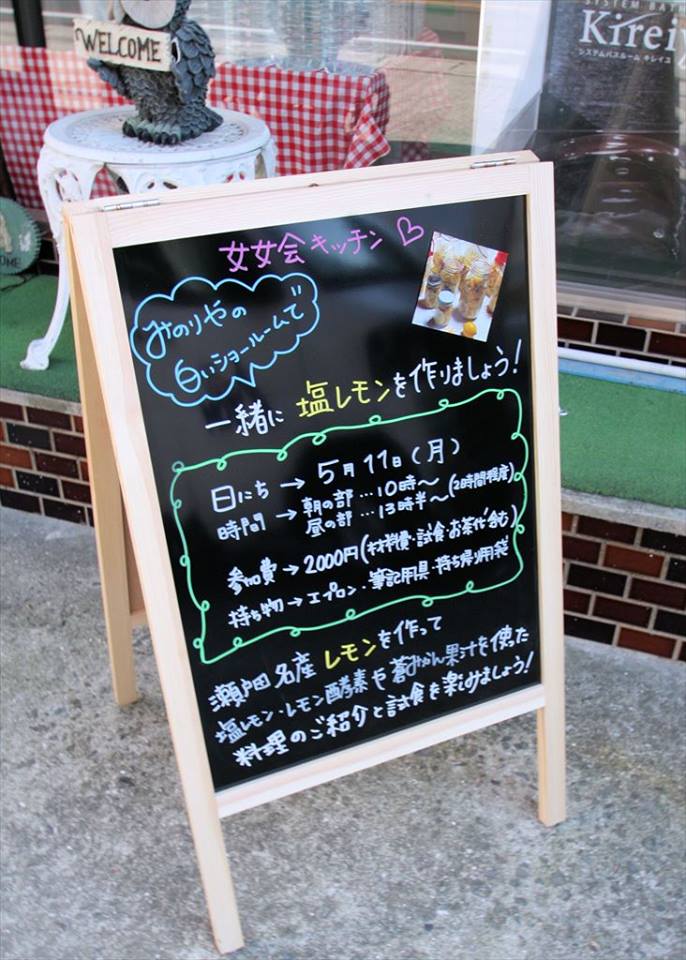 WELCOME
SYSTEM BA
Kirei
システムバスルーム キレイユ
女女会キッチン♡
みのりやの
白いショールームで
一緒に 塩レモンを作りましょう!
日にち → 5月11日(月)
時間 → 朝の部…10時〜
昼の部…13時半〜 (2時間程度)
参加費 → 2000円(材料費・試食・お茶代含む)
持ち物 → エプロン・筆記用具・持ち帰り用袋
瀬戸田名産 レモンを作って
塩レモン・レモン酵素や蒼みかん果汁を使った
料理のご紹介と試食を楽しみましょう!